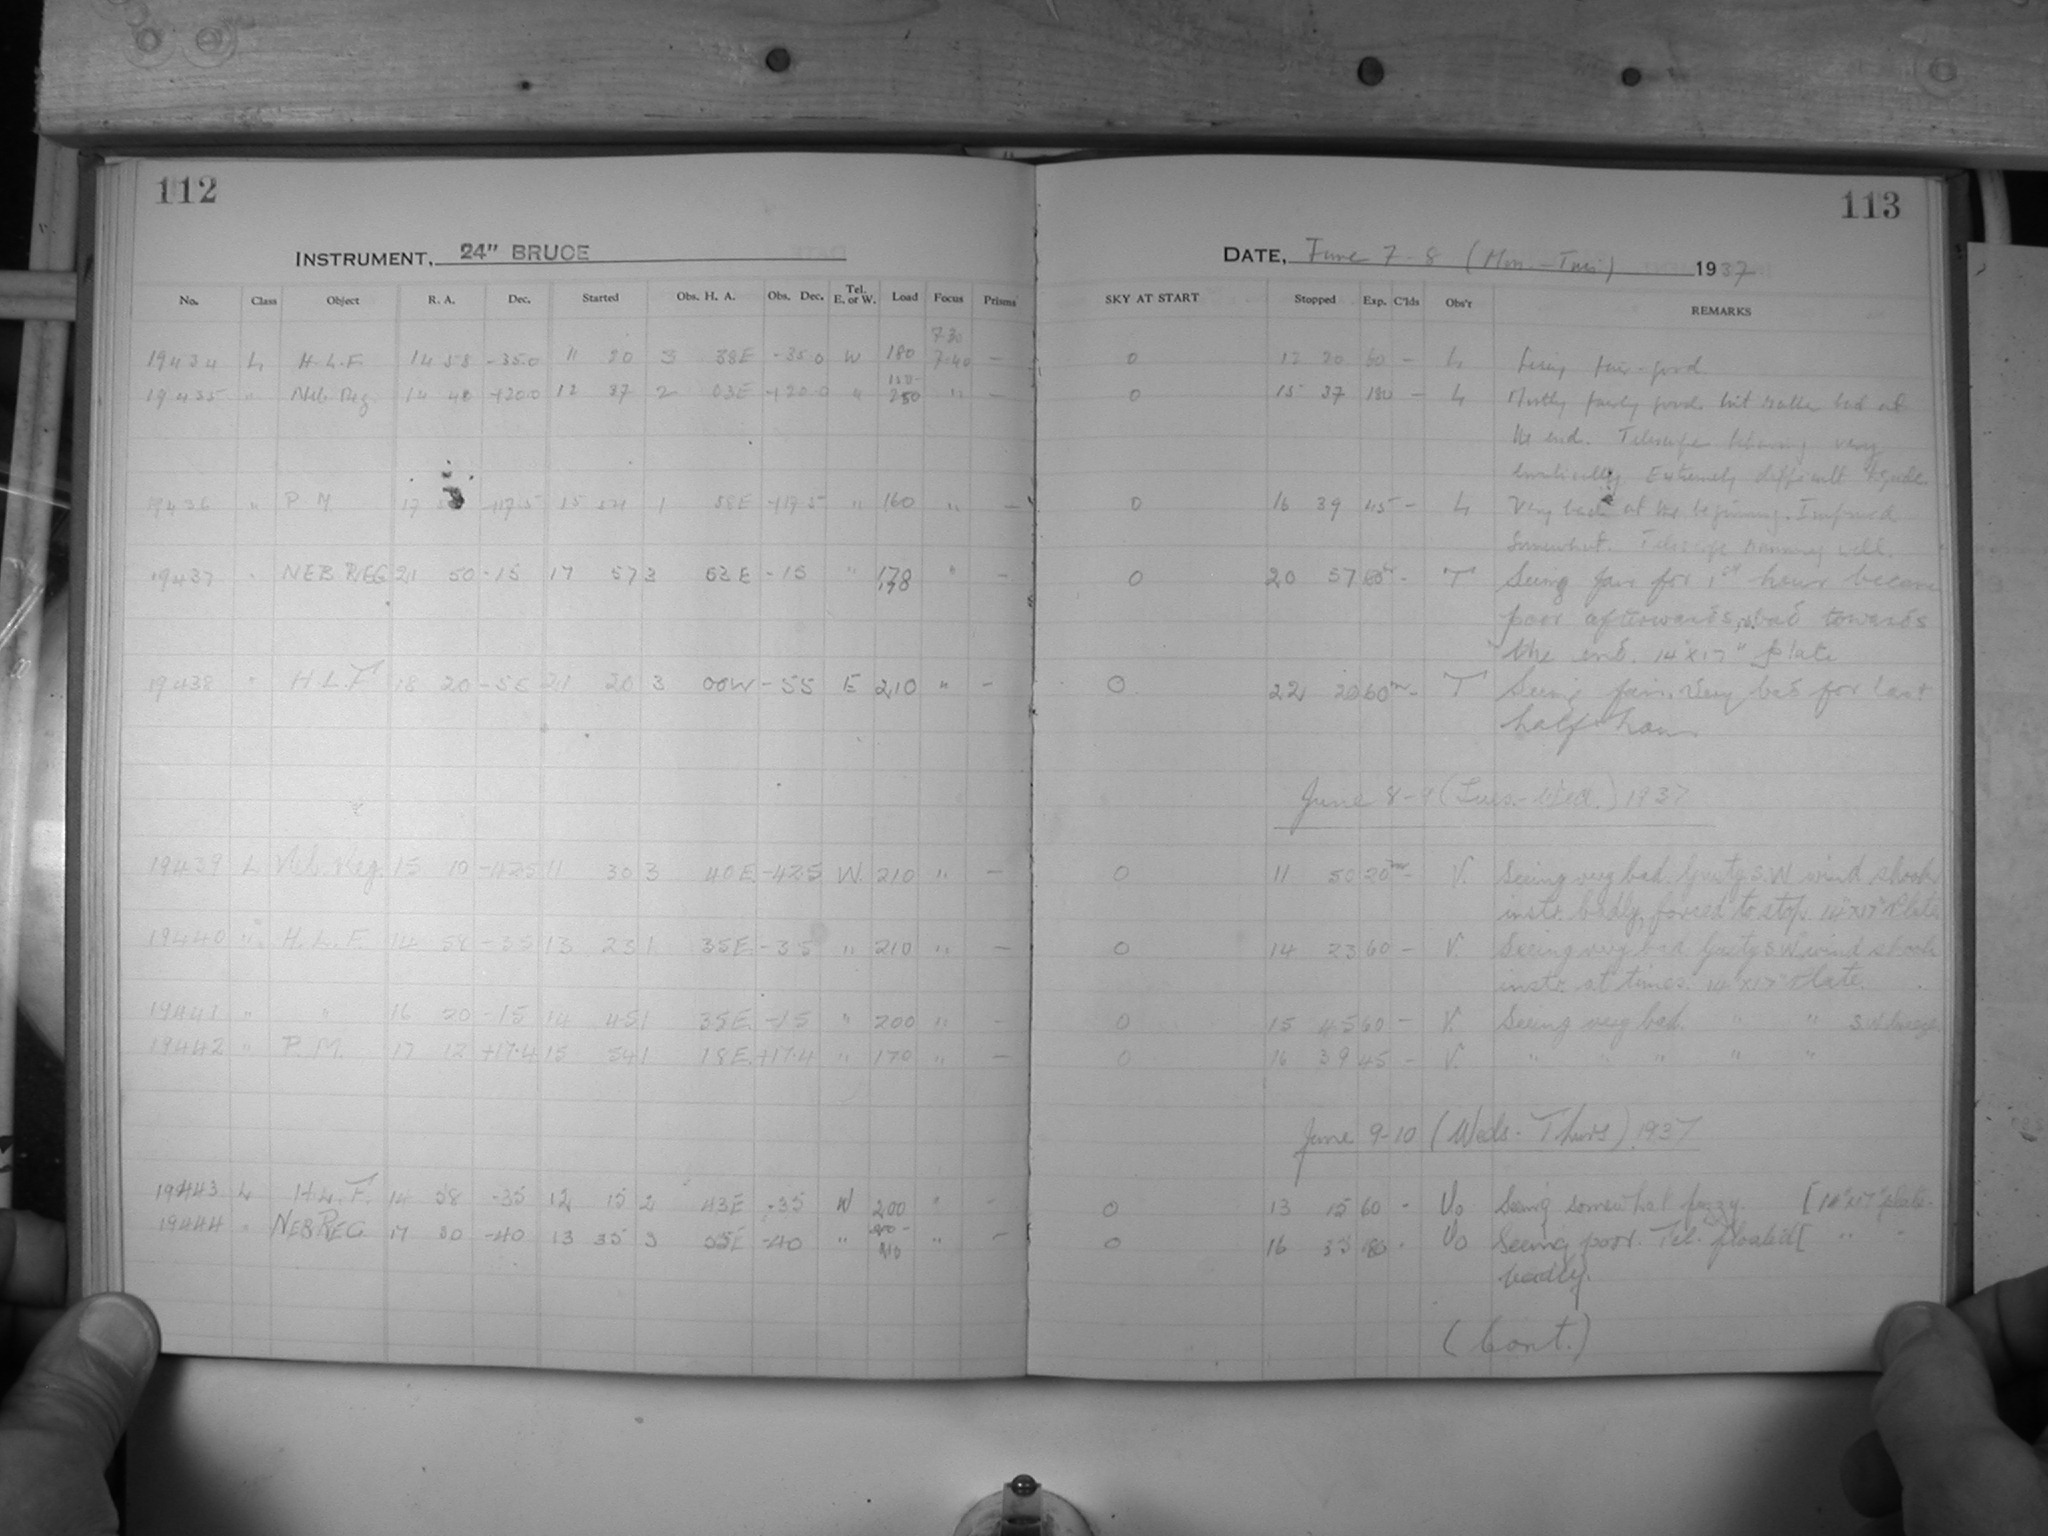 112
113
INSTRUMENT, 24" BRUCE
DATE, June 7-8 (Mon.-Tues) 1937
No. Class Object R. A. Dec. Started Obs. H. A. Obs. Dec. Tel. E. or W. Load Focus Prisms SKY AT START Stopped Exp. C'lds Obs'r REMARKS
7.30
19434 L H.L.F. 14 58 -35.0 11 20 3 38E -35.0 W 180 7.40 — 0 12 20 60 — L Seeing fair-good
19435 " Neb Reg. 14 40 +20.0 12 37 2 03E +20.0 " 250 " — 0 15 37 180 — L Mostly fairly good but rather bad at
the end. Telescope behaving very
erratically Extremely difficult to guide.
19436 " P M 17 +17.5 15 54 1 38E +17.5 " 160 " — 0 16 39 45 — L Very bad at the beginning. Improved
somewhat. Telescope running well.
19437 " NEB REG 21 50 -15 17 57 3 03E -15 " 178 " — 0 20 57 - T Seeing fair for 1st hour became
poor afterwards, bad towards
the end. 14"x17" plate
19438 " H.L.F 18 20 -55 21 20 3 00W -55 E 210 " — 0 22 20 60m - T Seeing fair. Very bad for last
half hour
June 8-9 (Tues.-Wed.) 1937
19439 L Neb. Reg. 15 10 -42.5 11 30 3 40E -42.5 W. 210 " — 0 11 50 20m - V. Seeing very bad. Gusty S.W wind shook
instr. badly, forced to stop. 14"x17" Plate
19440 " H.L.F. 14 58 -35 13 23 1 35E -35 " 210 " — 0 14 23 60 — V. Seeing very bad Gusty S W wind shook
instr. at times. 14"x17" Plate.
19441 " " 16 20 -15 14 45 1 35E -15 " 200 " — 0 15 45 60 — V. Seeing very bad. " " S.W breeze
19442 " P.M. 17 12 +17.4 15 54 1 18E +17.4 " 170 " — 0 16 39 45 — V. " " " " "
June 9-10 (Weds - Thurs) 1937
19443 L H.L.F. 14 58 -35 12 15 2 43E -35 W 200 " — 0 13 15 60 - Vo Seeing somewhat fuzzy. [14"x17" plate.
19444 " NEB REG 17 30 -40 13 35 3 05E -40 " 210 " — 0 16 35 180 - Vo Seeing poor. Tel. floated [ " "
badly.
(Cont.)